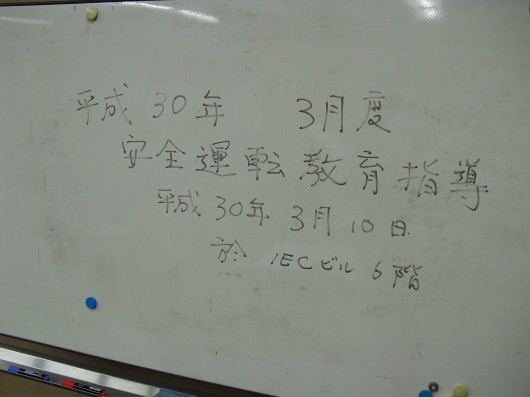 平成 30年 3月度
安全運転教育指導
平成 30年 3月 10日
於 IECビル 6階